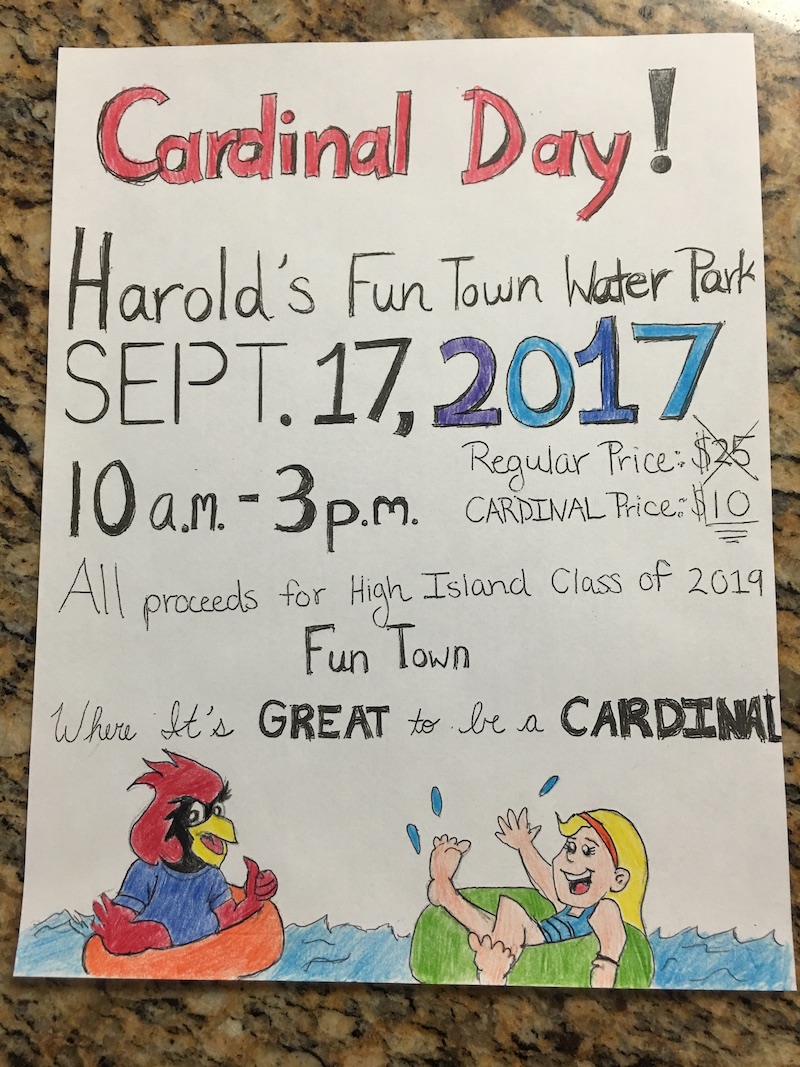 Cardinal Day!
Harold's Fun Town Water Park
SEPT. 17, 2017
10 a.m. - 3 p.m.
Regular Price: $25
CARDINAL Price: $10
All proceeds for High Island Class of 2019
Fun Town
Where It's GREAT to be a CARDINAL